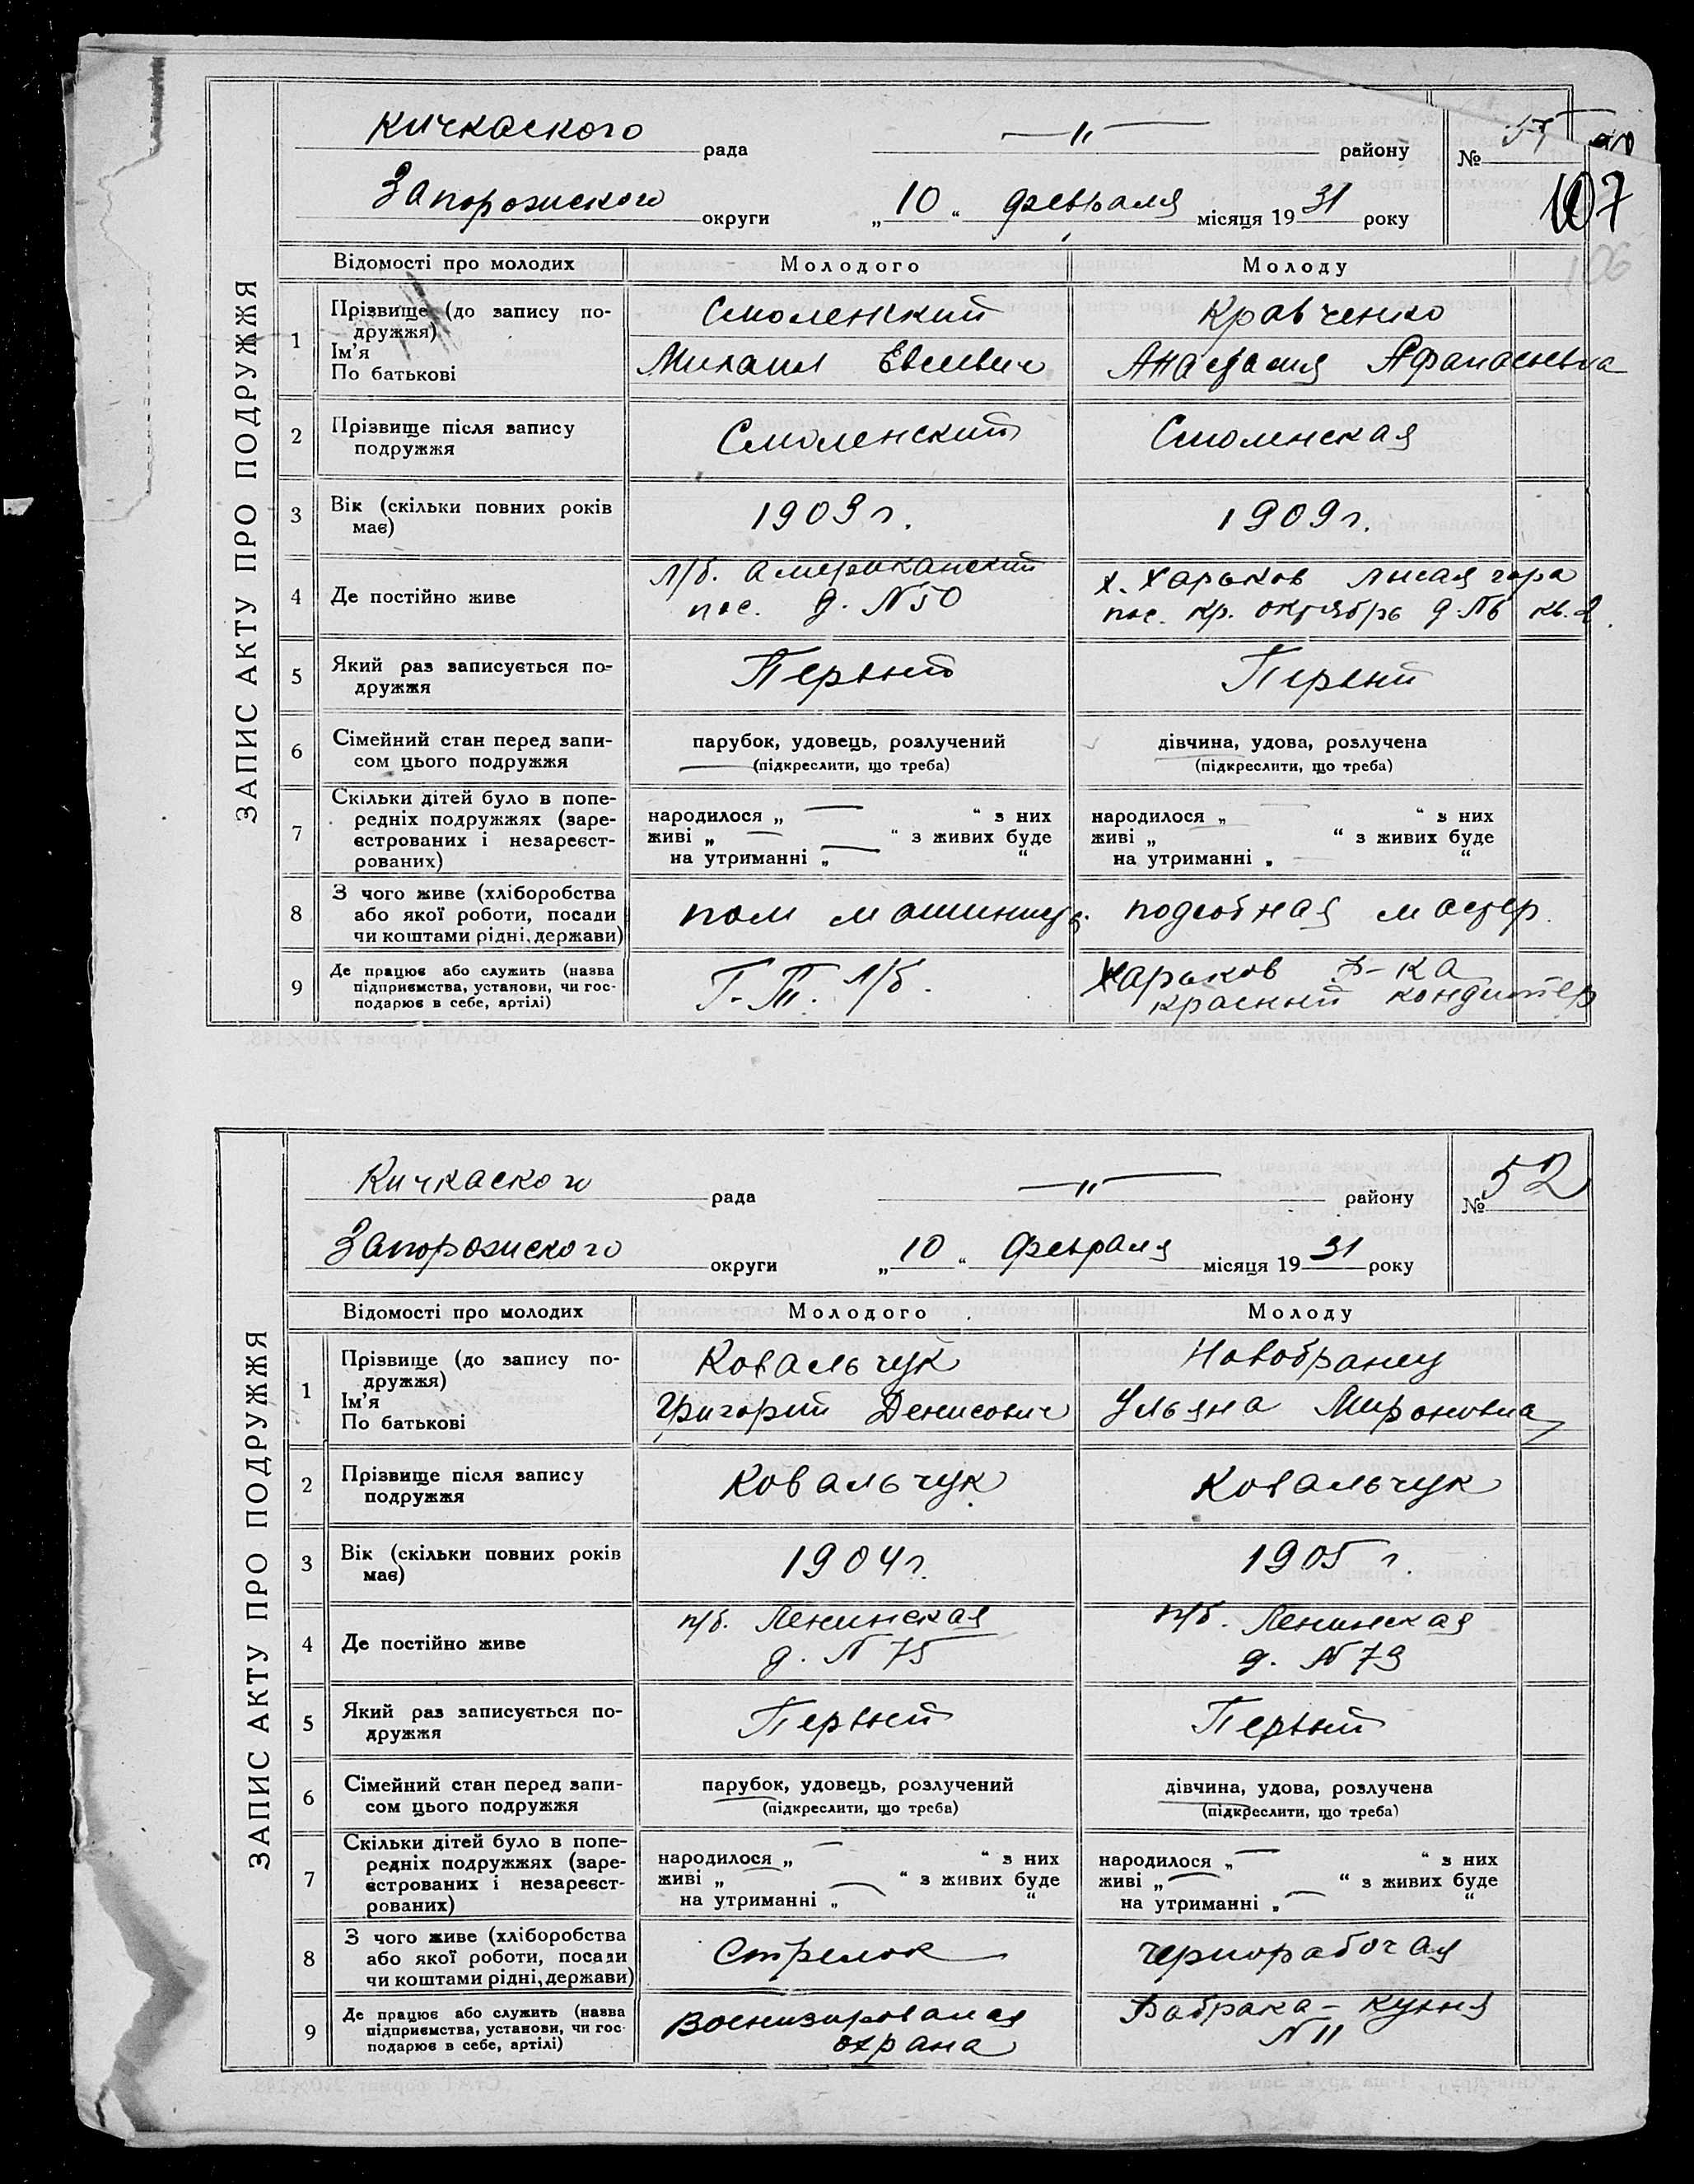 ЗАПИС АКТУ ПРО ПОДРУЖЖЯ
Кичкаского рада —"— району №
107
106
Запорожского округи „ 10 “ февраля місяця 19 31 року
Відомості про молодих Молодого Молоду
1 Прізвище (до запису по-
дружжя)
Ім'я
По батькові
Смоленский Кравченко
Михаил Евсевич Анастасия Афанасьевна
2 Прізвище після запису
подружжя
Смоленский Смоленская
3 Вік (скільки повних років
має)
1909 г. 1909 г.
4 Де постійно живе
л/б. американский
пос. д. N 50
г. Харьков Лисая гора
пос. кр. октябрь д. N6 кв. 2.
5 Який раз записується по-
дружжя
Первый Первый
6 Сімейний стан перед запи-
сом цього подружжя
парубок, удовець, розлучений
(підкреслити, що треба)
дівчина, удова, розлучена
(підкреслити, що треба)
7 Скільки дітей було в попе-
редніх подружжях (заре-
єстрованих і незареєст-
рованих)
народилося „ — “ з них
живі „ — “ з живих буде
на утриманні „ — “
народилося „ — “ з них
живі „ “ з живих буде
на утриманні „ — “
8 З чого живе (хліборобства
або якої роботи, посади
чи коштами рідні, держави)
пом машиниста. подсобная мастер.
9 Де працює або служить (назва
підприємства, установи, чи гос-
подарює в себе, артілі)
Г.Т. л/б.
Харьков ф-ка
красный кондитер
ЗАПИС АКТУ ПРО ПОДРУЖЖЯ
Кичкаского рада —"— району № 52
Запорожского округи „ 10 “ февраля місяця 19 31 року
Відомості про молодих Молодого Молоду
1 Прізвище (до запису по-
дружжя)
Ім'я
По батькові
Ковальчук Новобранец
Григорий Денисович Ульяна Мироновна
2 Прізвище після запису
подружжя
Ковальчук Ковальчук
3 Вік (скільки повних років
має)
1904 г. 1905 г.
4 Де постійно живе
п/б. Ленинская
д. N 75
п/б. Ленинская
д. N 73
5 Який раз записується по-
дружжя
Первый Первый
6 Сімейний стан перед запи-
сом цього подружжя
парубок, удовець, розлучений
(підкреслити, що треба)
дівчина, удова, розлучена
(підкреслити, що треба)
7 Скільки дітей було в попе-
редніх подружжях (заре-
єстрованих і незареєст-
рованих)
народилося „ — “ з них
живі „ — “ з живих буде
на утриманні „ “
народилося „ — “ з них
живі „ — “ з живих буде
на утриманні „ — “
8 З чого живе (хліборобства
або якої роботи, посади
чи коштами рідні, держави)
Стрелок чернорабочая
9 Де працює або служить (назва
підприємства, установи, чи гос-
подарює в себе, артілі)
Военизированая
охрана
Фабрака-кухня
N 11